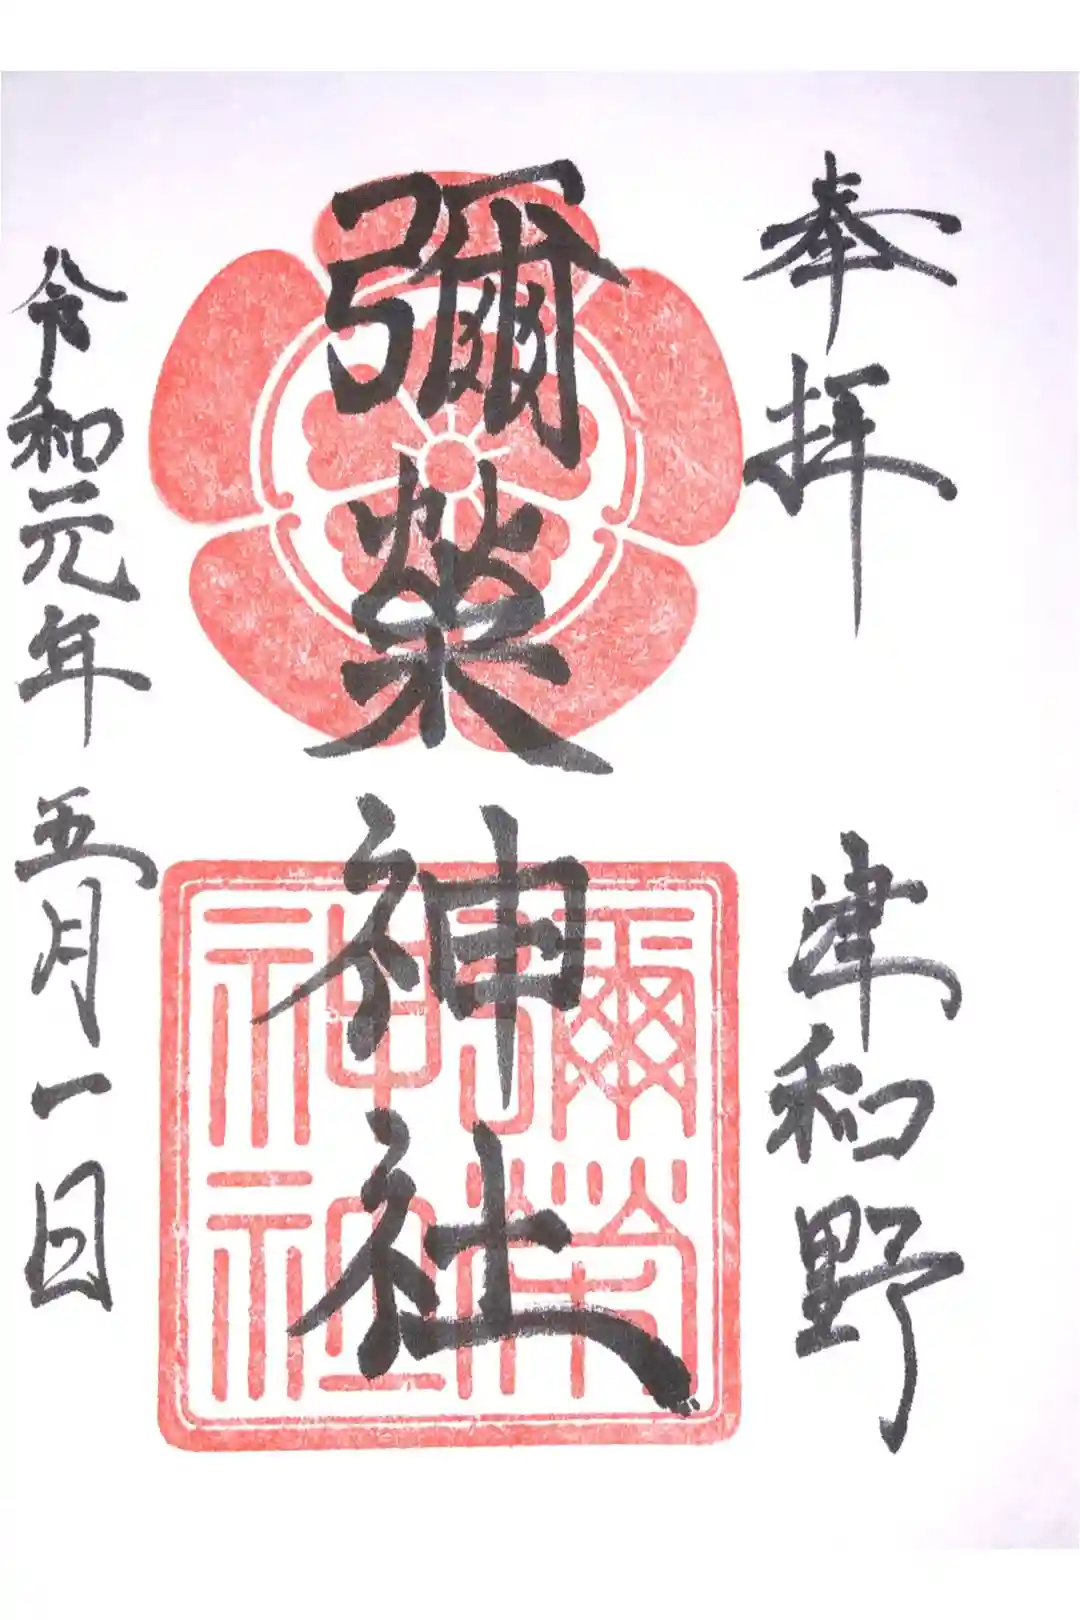 奉拝
津和野
彌榮神社
彌榮神社
令和元年五月一日